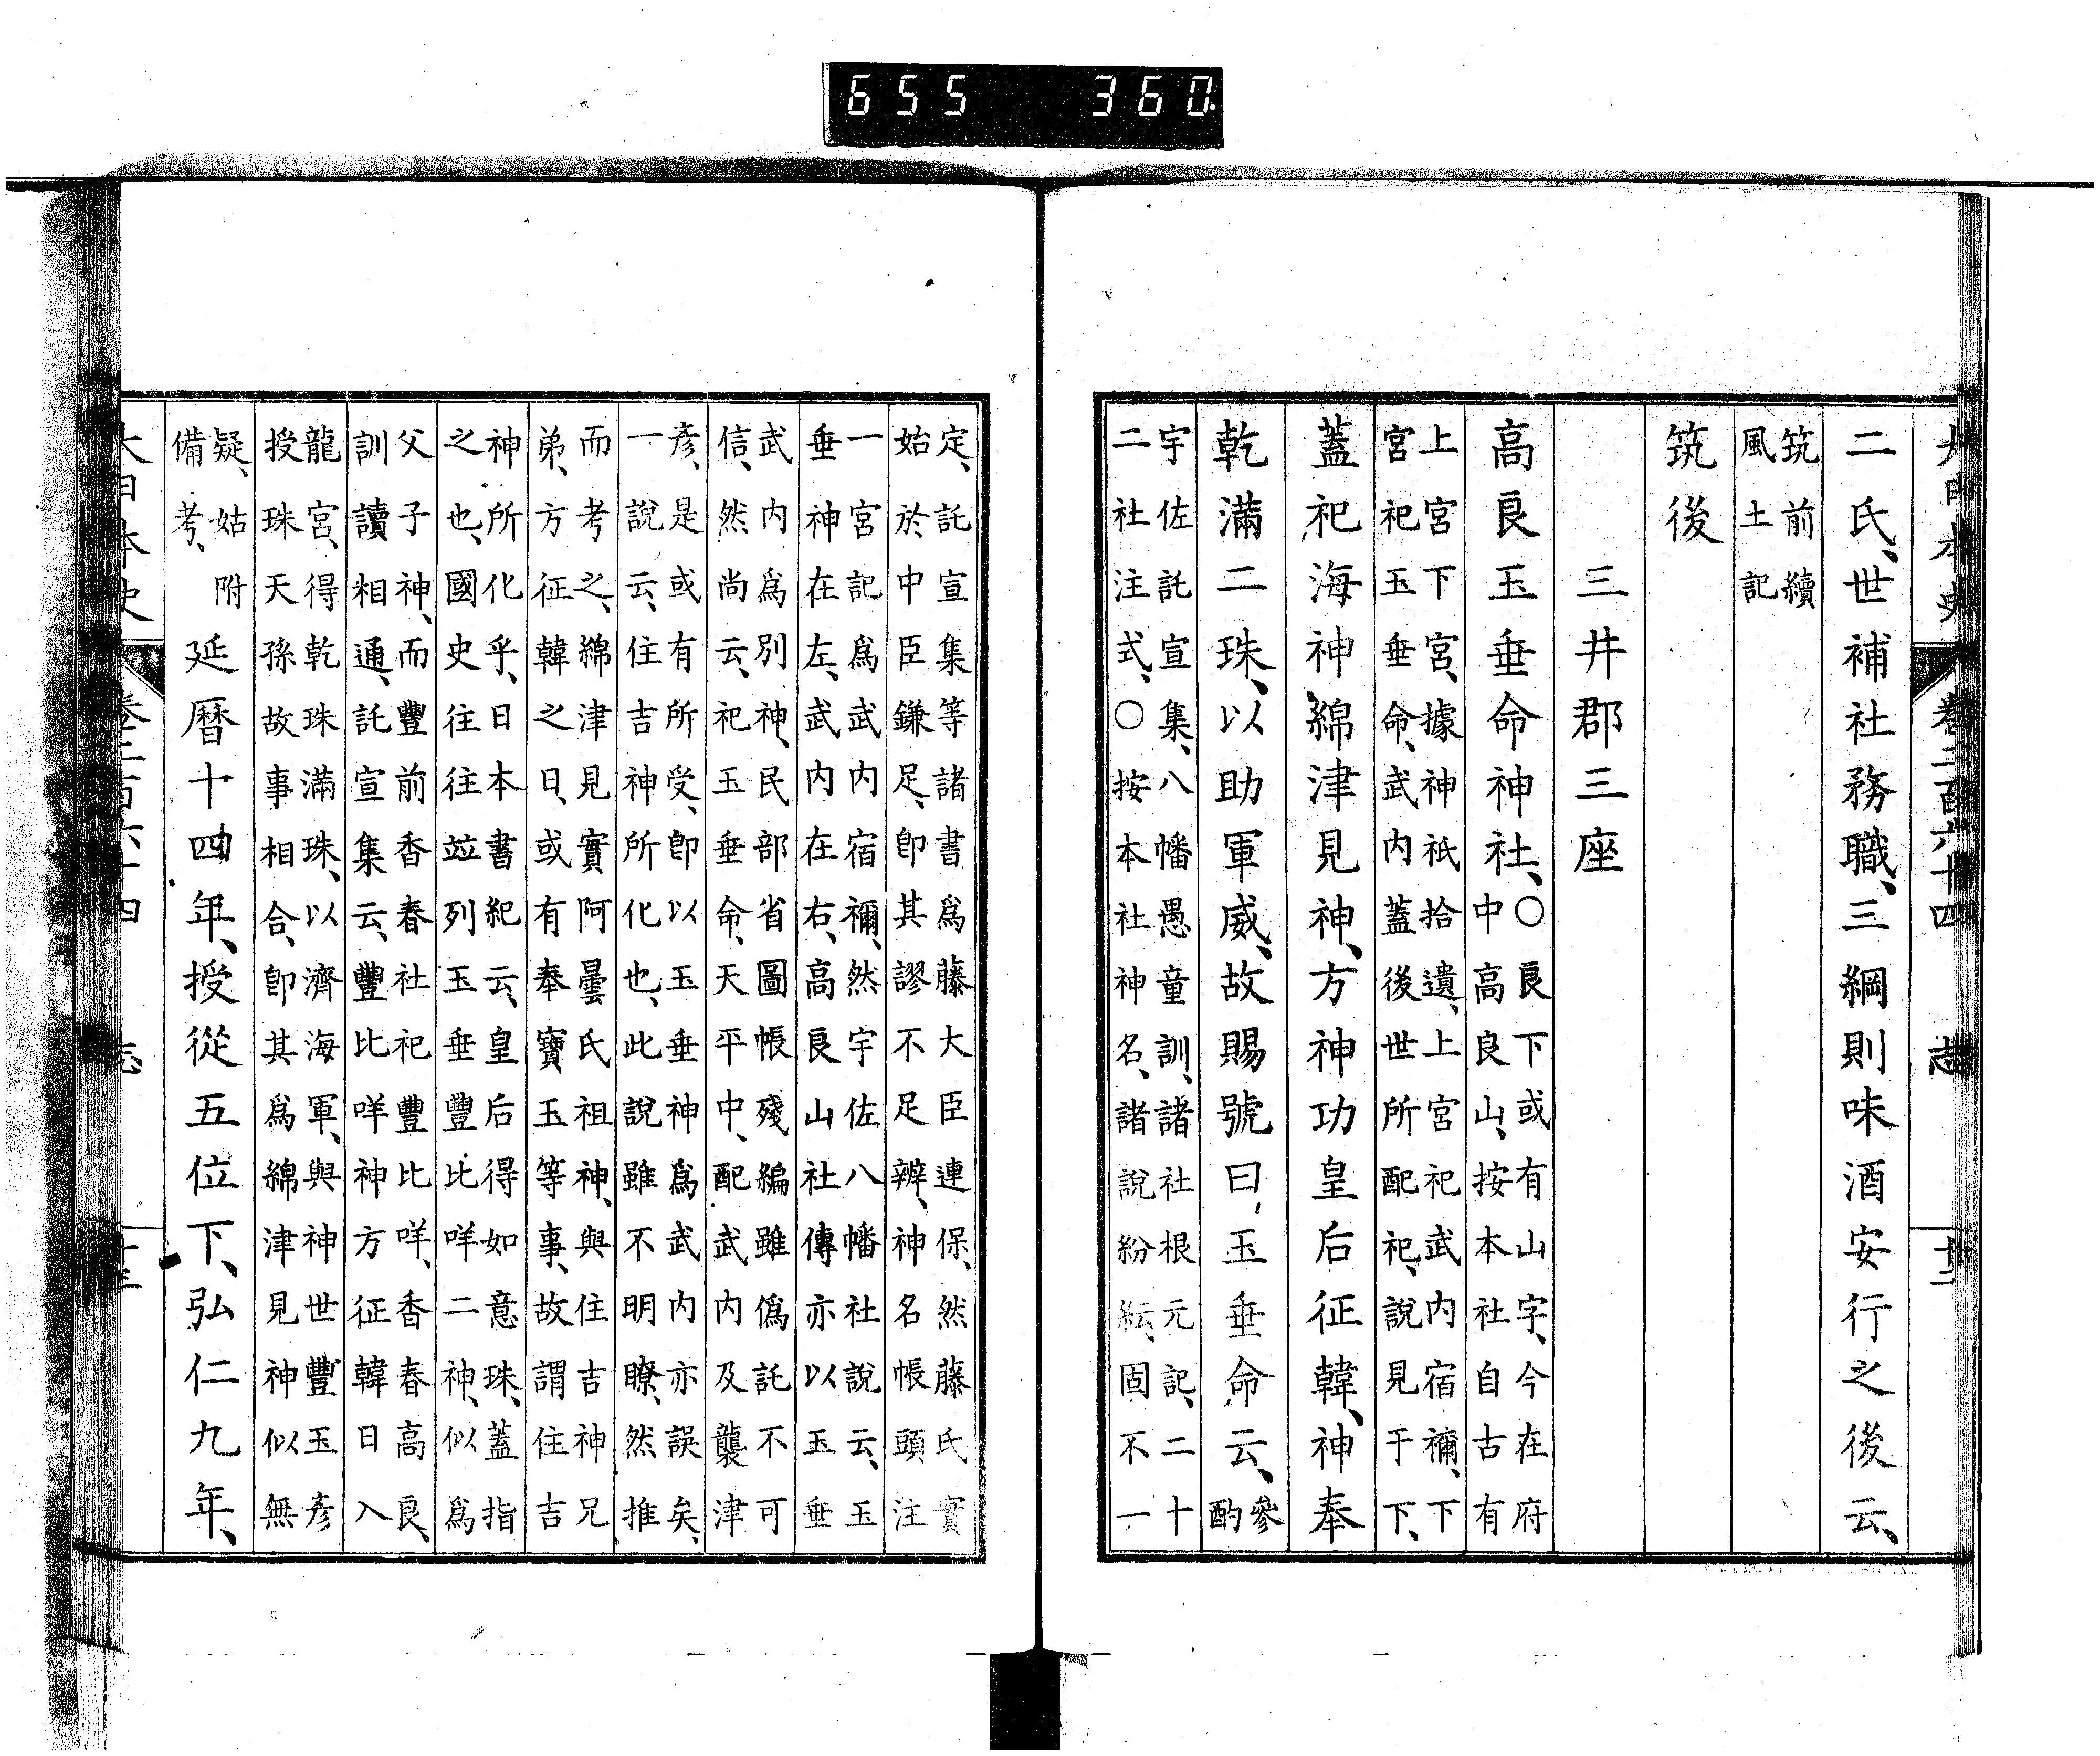 655 360
大日本史 卷二百六十四 志 十二
二氏、世補社務職、三綱則味酒安行之後云、
筑前續
風土記
筑後
三井郡三座
高良玉垂命神社、
〇良下或有山字、今在府
中高良山、按本社自古有
上宮下宮、據神祇拾遺、上宮祀武内宿禰、下
宮祀玉垂命、武内蓋後世所配祀、説見于下、
蓋祀海神綿津見神、方神功皇后征韓、神奉
乾滿二珠、以助軍威、故賜號曰、玉垂命云、
參
酌
宇佐託宣集、八幡愚童訓、諸社根元記、二十
二社注式、〇按本社神名、諸説紛紜、固不一
定、託宣集等諸書爲藤大臣連保、然藤氏實
始於中臣鎌足、卽其謬不足辨、神名帳頭注
一宮記爲武内宿禰、然宇佐八幡社説云、玉
垂神在左、武内在右、高良山社傳亦以玉垂
武内爲別神、民部省圖帳殘編雖僞託不可
信、然尚云、祀玉垂命、天平中、配武内及襲津
彥、是或有所受、卽以玉垂神爲武内亦誤矣、
一説云、住吉神所化也、此説雖不明瞭、然推
而考之、綿津見實阿曇氏祖神、與住吉神兄
弟、方征韓之日、或有奉寶玉等事、故謂住吉
神所化乎、日本書紀云、皇后得如意珠、蓋指
之也、國史往往竝列玉垂豐比咩二神、似爲
父子神、而豐前香春社祀豐比咩、香春高良、
訓讀相通、託宣集云、豐比咩神方征韓日入
龍宮、得乾珠滿珠、以濟海軍、與神世豐玉彥
授珠天孫故事相合、卽其爲綿津見神似無
疑、姑附
備考、
延曆十四年、授從五位下、弘仁九年、
大日本史 卷二百六十四 志 十三